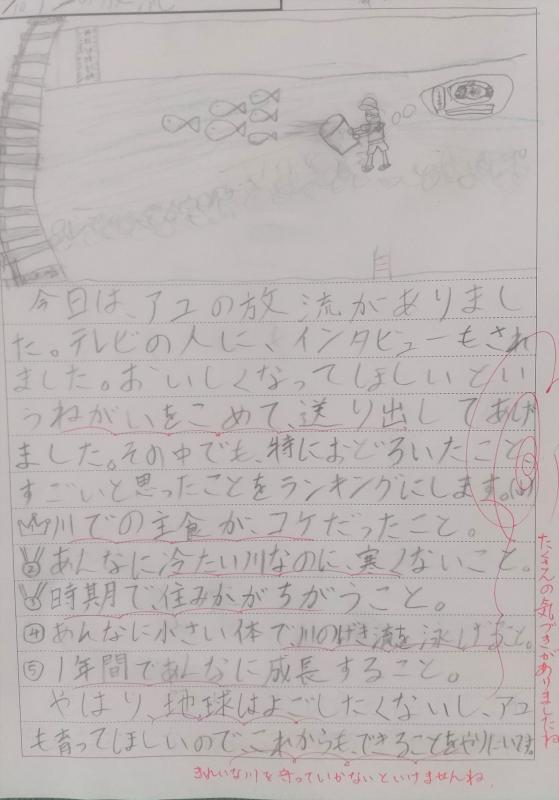 今日は、アユの放流がありまし
た。テレビの人に、インタビューもされ
ました。おいしくなってほしいとい
うねがいをこめて、送り出してあげ
ました。その中でも、特におどろいたこと
すごいと思ったことをランキングにします。
川での主食が、コケだったこと。
②あんなに冷たい川なのに、寒くないこと。
③時期で、住みかがちがうこと。
④あんなに小さい体で川のげき流を泳げること。
⑤1年間であんなに成長すること。
やはり、地球はよごしたくないし、アユ
も育ってほしいので、これからも、できることをやりたいです。
たくさんの気づきがありましたね
きれいな川を守っていかないといけませんね。